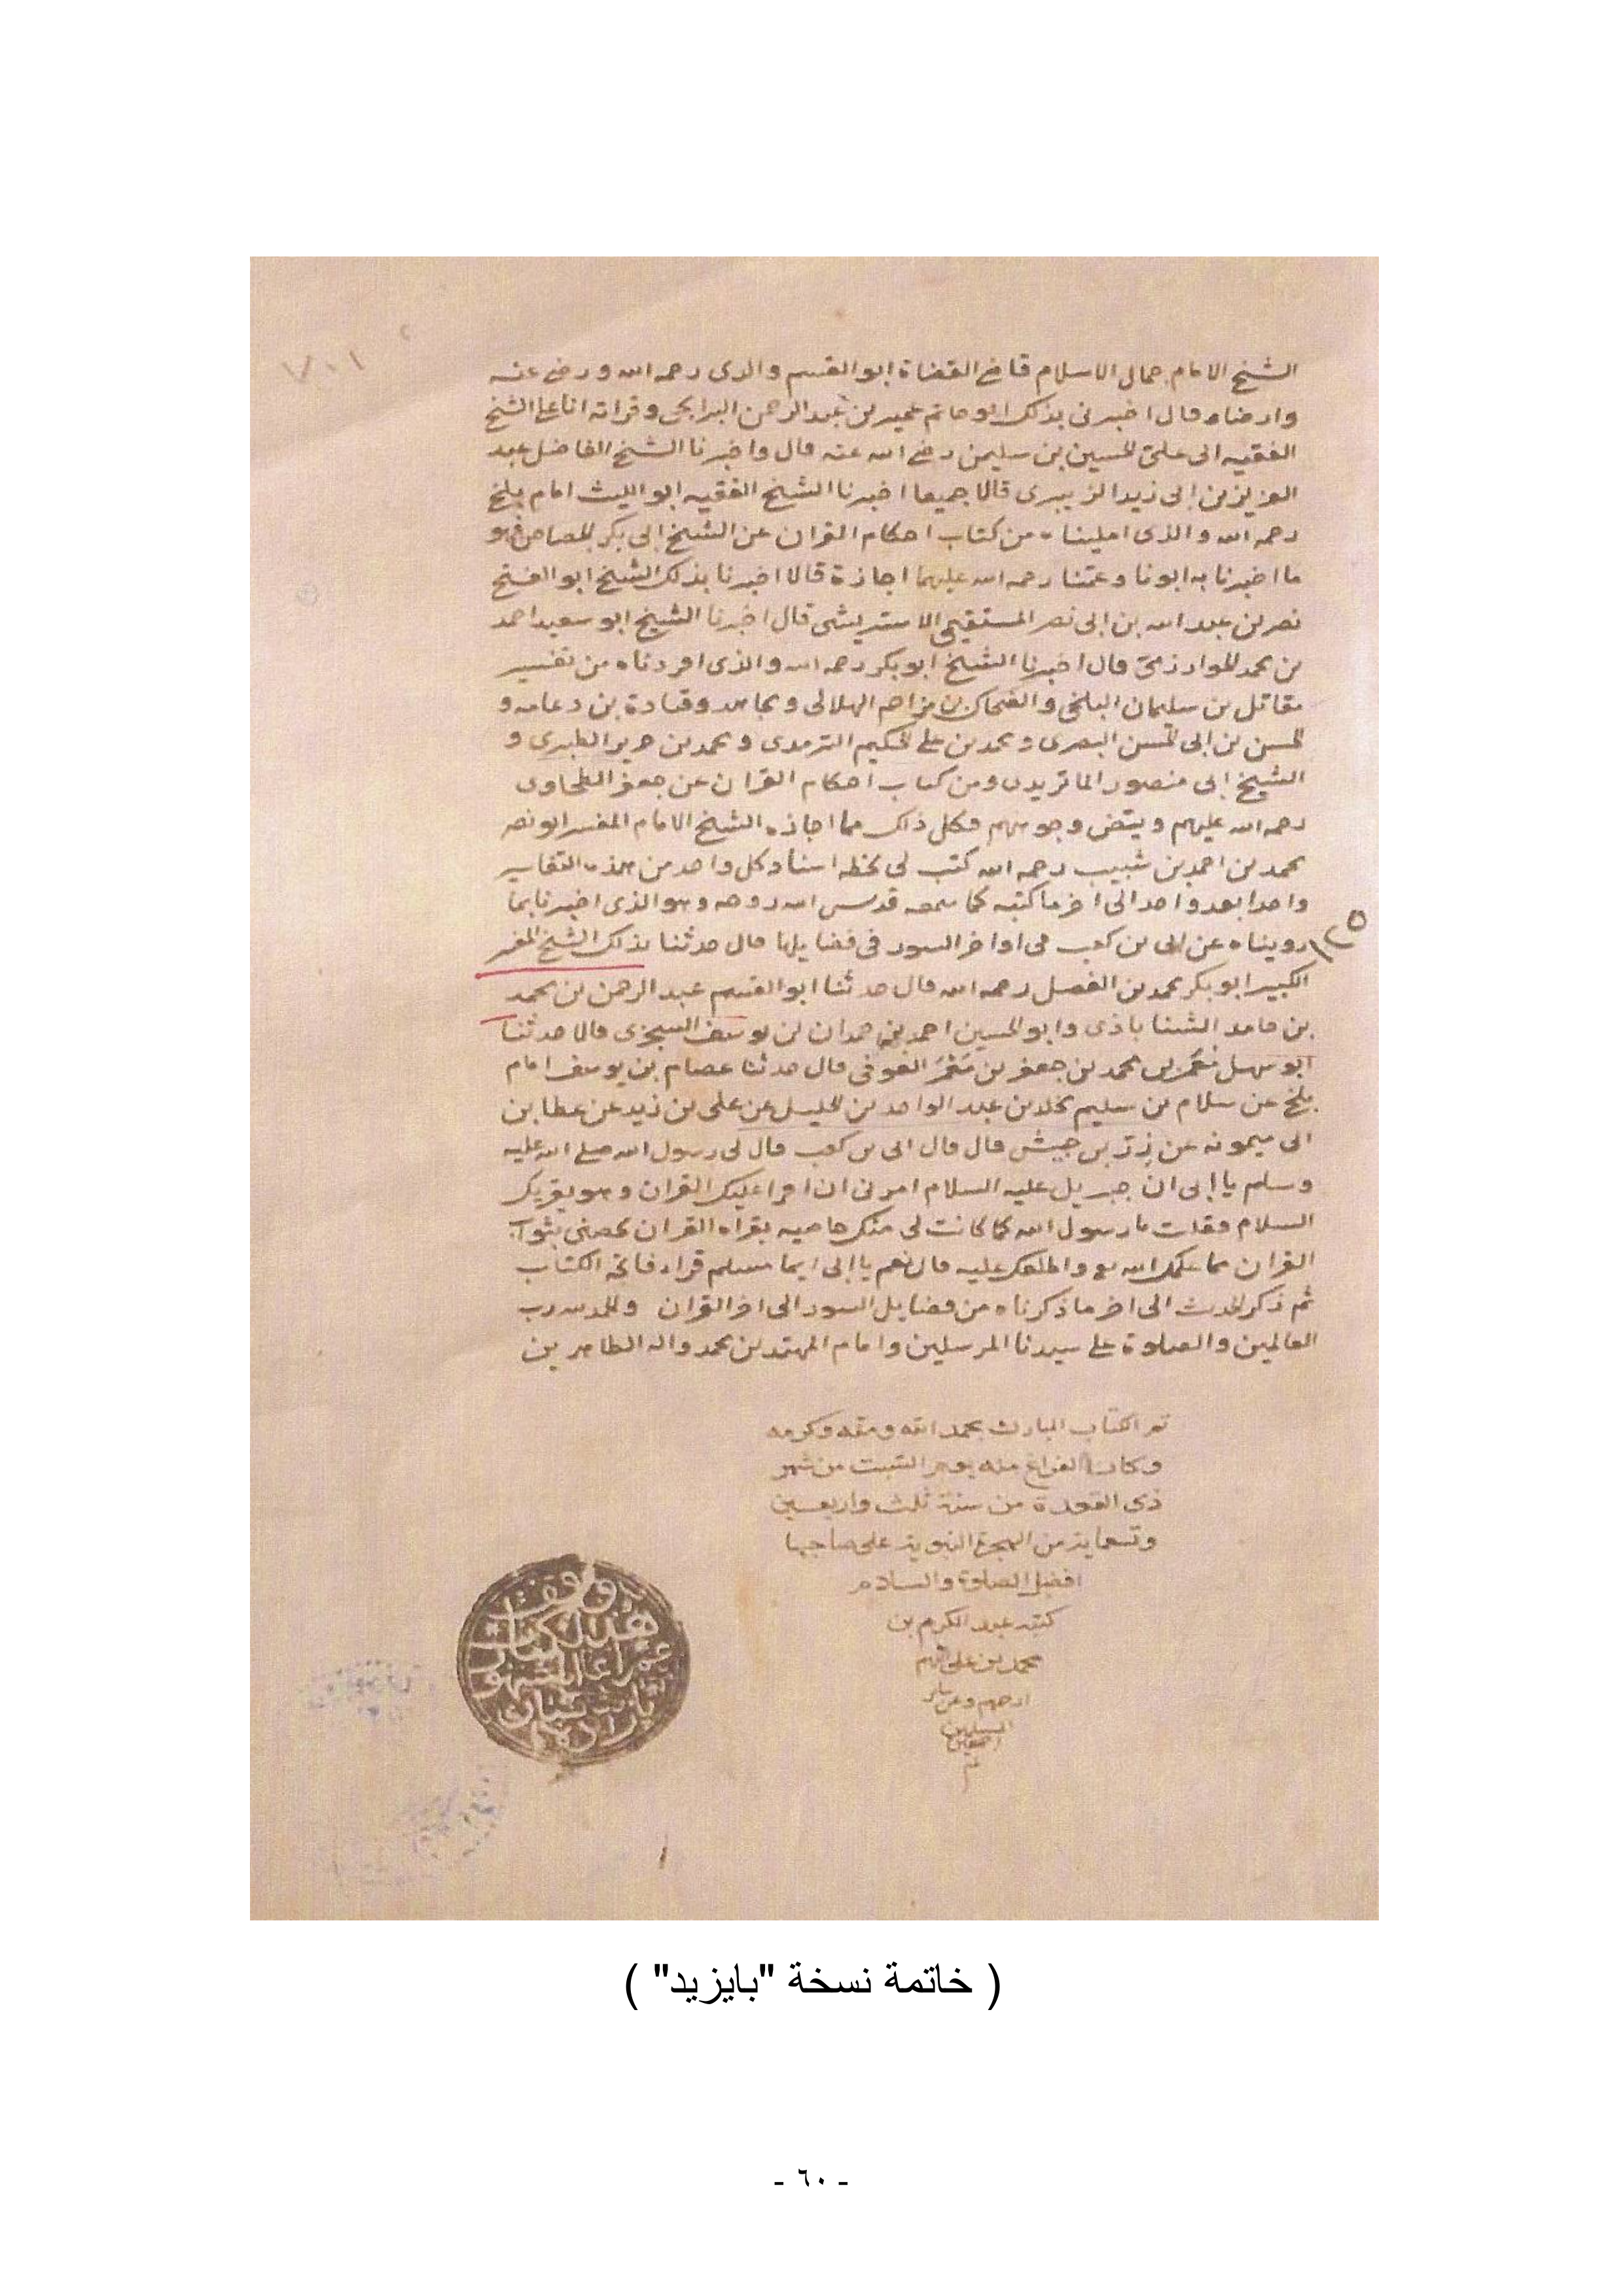 الشيخ الامام جمال الاسلام قاضى القضاة ابو القسم والدى رحمه الله ورضى عنه
وارضاه قال اخبرنى بذلك ابو حاتم عبد الرحمن وقراته انا على الشيخ
الفقيه ابى على الحسين بن سليمن رضى الله عنه قال واخبرنا الشيخ الفاضل عبد
العزيز بن ابى زيد الزبيرى قالا جميعا اخبرنا الشيخ الفقيه ابو الليث امام بلخ
رحمه الله والذى امليناه من كتاب احكام القران عن الشيخ ابى بكر الجصاص فهو
ما اخبرنا به ابونا وعمنا رحمه الله عليهما اجازة قالا اخبرنا بذلك الشيخ ابو الفتح
نصر بن عبد الله بن ابى نصر قال اخبرنا الشيخ ابو سعيد احمد
بن محمد الخوارزمى قال اخبرنا الشيخ ابو بكر رحمه الله والذى اوردناه من تفسير
مقاتل بن سليمان البلخى والضحاك بن مزاحم الهلالى ومجاهد وقتادة بن دعامه و
الحسن بن ابى الحسن البصرى ومحمد بن على الحكيم الترمدى ومحمد بن جرير الطبرى و
الشيخ ابى منصور الماتريدى ومن كتاب احكام القران عن جعفر الطحاوى
رحمه الله عليهم وبيض وجوههم فكل ذلك مما اجازه الشيخ الامام المفسر ابو نصر
محمد بن احمد بن شبيب رحمه الله كتب لى بخطه اسناد كل واحد من هذه التفاسير
واحدا بعد واحد الى اخر ما كتبه كما سمعه قدس الله روحه وهو الذى اخبرنا بما
رويناه عن ابى بن كعب فى اواخر السور فى فضايلها قال حدثنا بذلك الشيخ المفسر
الكبير ابو بكر محمد بن الفضل رحمه الله قال حدثنا ابو القسم عبد الرحمن بن محمد
بن حامد وابو الحسين احمد بن حمدان بن يوسف السجزى قالا حدثنا
ابو سهل محمد بن جعفر بن العوفى قال حدثنا عصام بن يوسف امام
بلخ عن سلام بن سليم بن عبد الواحد بن الخليل عن على بن زيد عن عطا بن
ابى ميمونه عن زر بن حبيش قال قال ابى بن كعب قال لى رسول الله صلى الله عليه
وسلم يا ابى ان جبريل عليه السلام امرنى ان اقرا عليك القران وهو يقريك
السلام فقلت يا رسول الله كما كانت لى منك خاصيه بقراه القران خصنى بثواب
القران مما علمك الله واطلعك عليه قال نعم يا ابى ايما مسلم قراء فاتحه الكتاب
ثم ذكر الحديث الى اخر ما ذكرناه من فضايل السور الى اخر القران والحمد لله رب
العالمين والصلوة على سيدنا المرسلين وامام المهتدين محمد واله الطاهرين
تم الكتاب المبارك بحمد الله ومنه وكرمه
وكان الفراغ منه يوم السبت من شهر
ذى القعدة من سنة ثلث واربعين
وتسعماية من الهجرة النبوية على صاحبها
افضل الصلوة والسلام
كتبه عبد الكريم بن
محمد بن على اللهم
ارحمهم وعن ساير
المسلمين
اجمعين
( خاتمة نسخة "بايزيد" )
- ٦٠ -